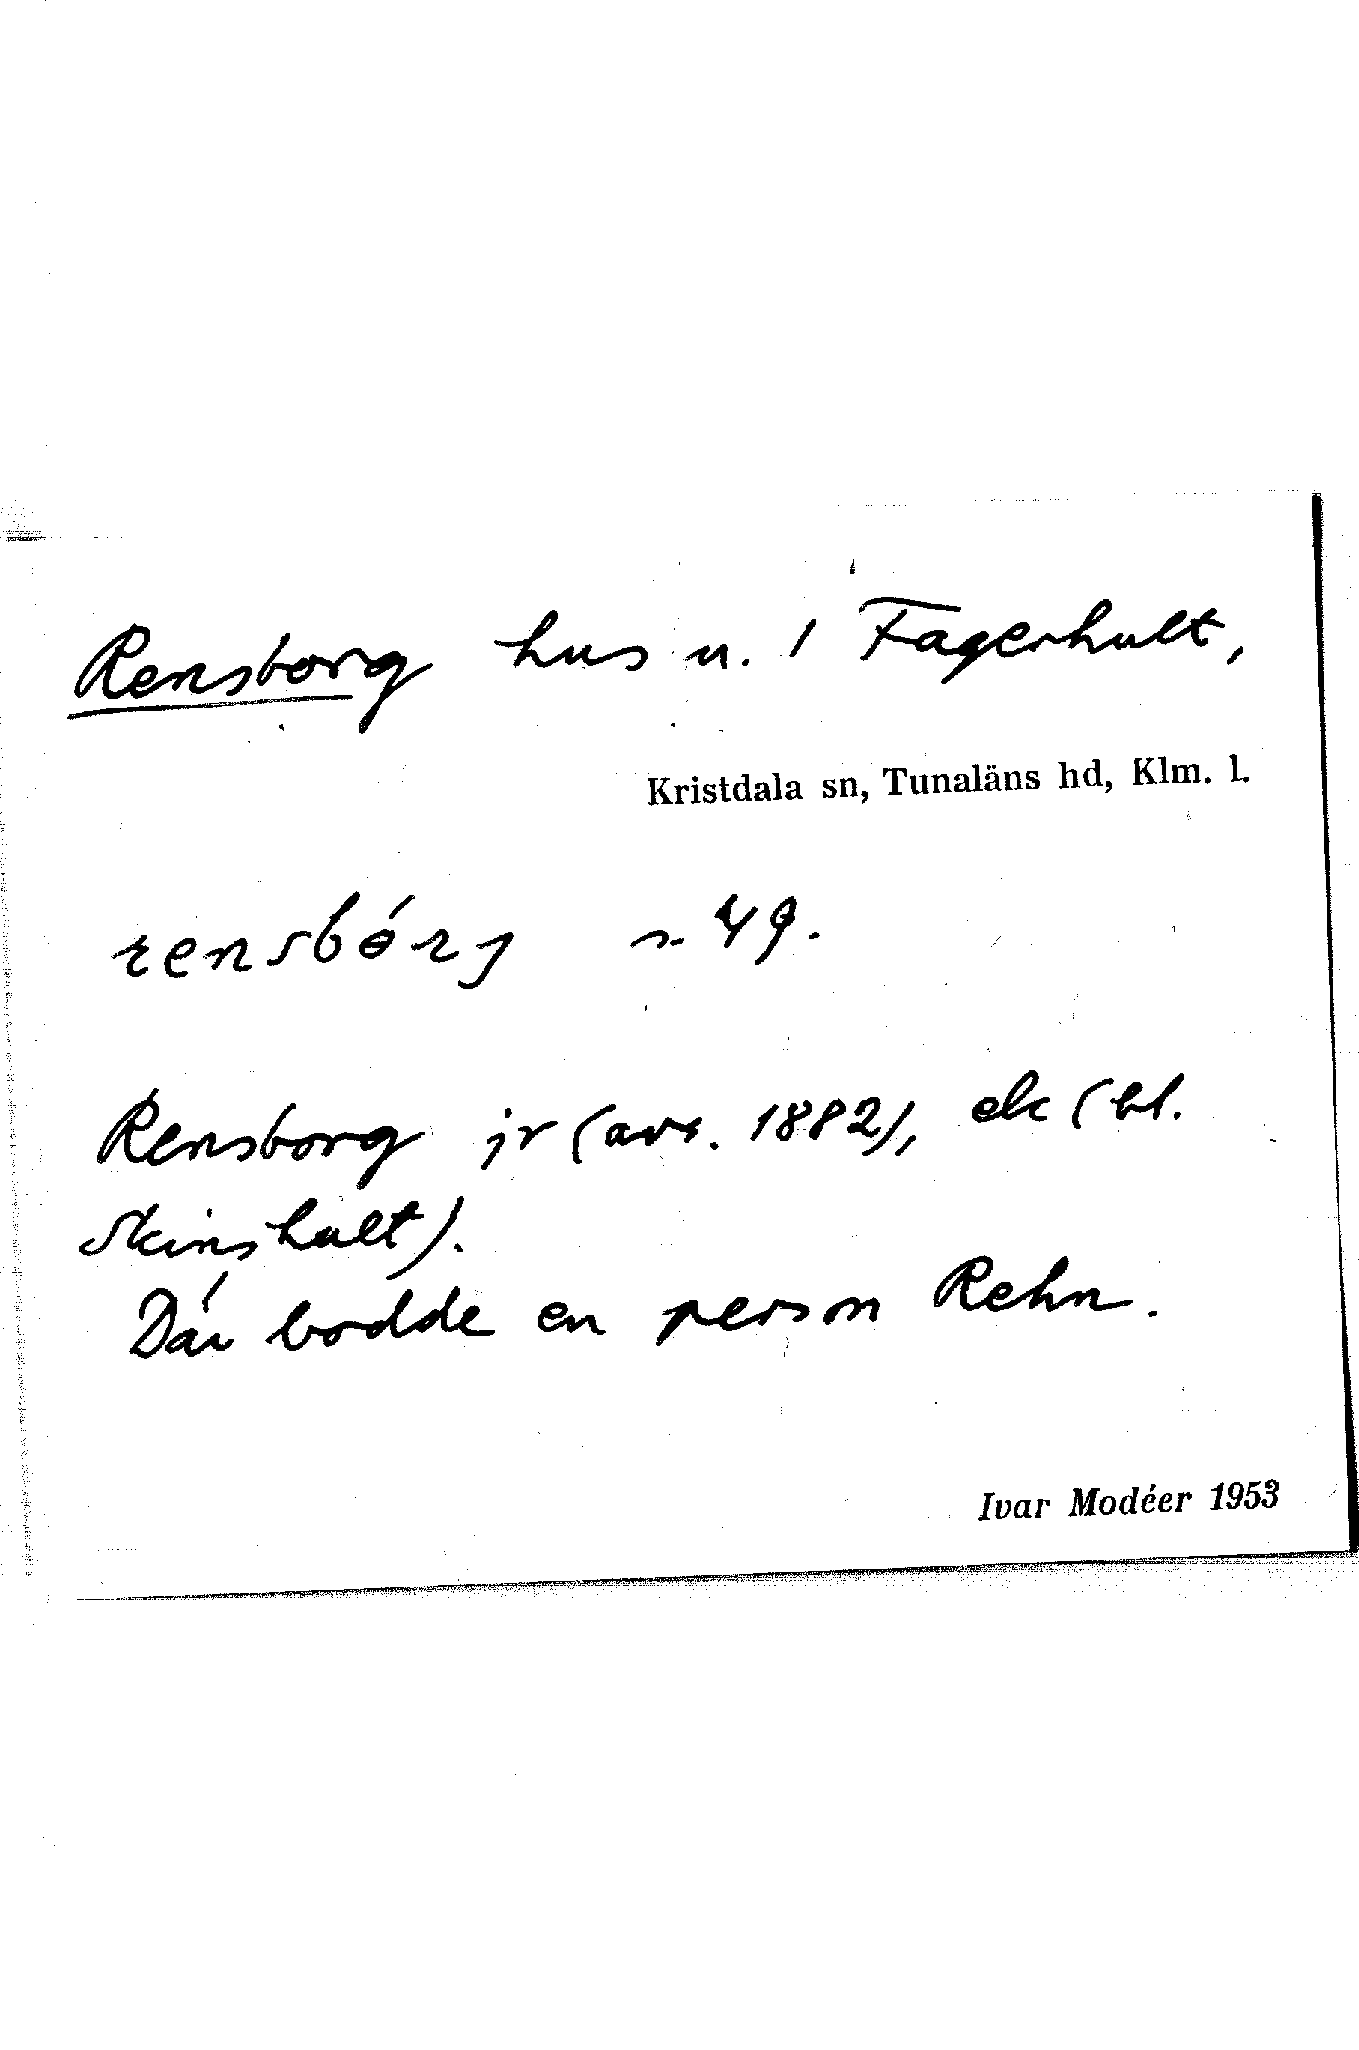 Rensborg hus u. / Fagerhult,
Kristdala sn, Tunaläns hd, Klm. l.
rensbórj s. 49.
Rensborg jr (avs. 1882), ek (bl.
Skinshult).
Där bodde en person Rehn.
Ivar Modéer 1953